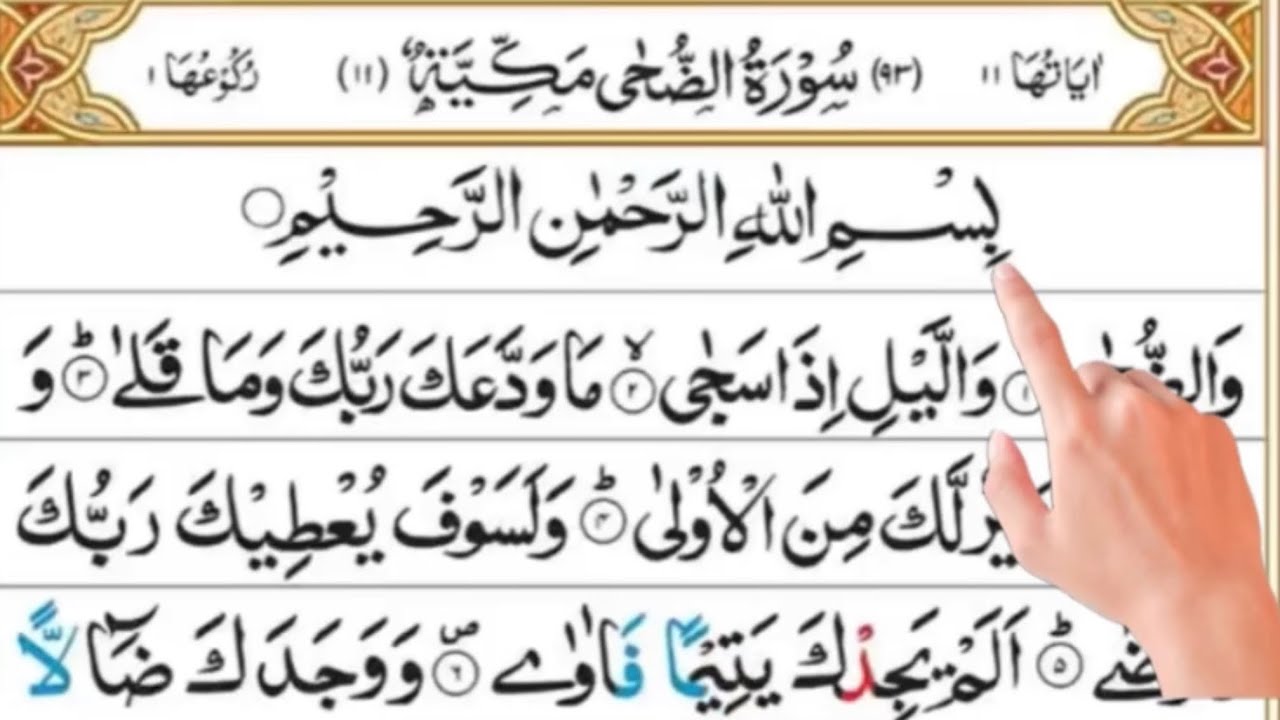 اٰيَاتُهَا ١١ (٩٣) سُوْرَةُ الضُّحٰى مَكِّيَّةٌ (١١) رُكُوْعُهَا ١
بِسْمِ اللّٰهِ الرَّحْمٰنِ الرَّحِيْمِ
١ وَالَّيْلِ اِذَا سَجٰى ۙ٢ مَا وَدَّعَكَ رَبُّكَ وَمَا قَلٰى ؕ٣ وَ
لَّكَ مِنَ الْاُوْلٰى ؕ٤ وَلَسَوْفَ يُعْطِيْكَ رَبُّكَ
ؕ٥ اَلَمْ يَجِدْكَ يَتِيْمًا فَاٰوٰى ۪٦ وَوَجَدَكَ ضَآلًّا